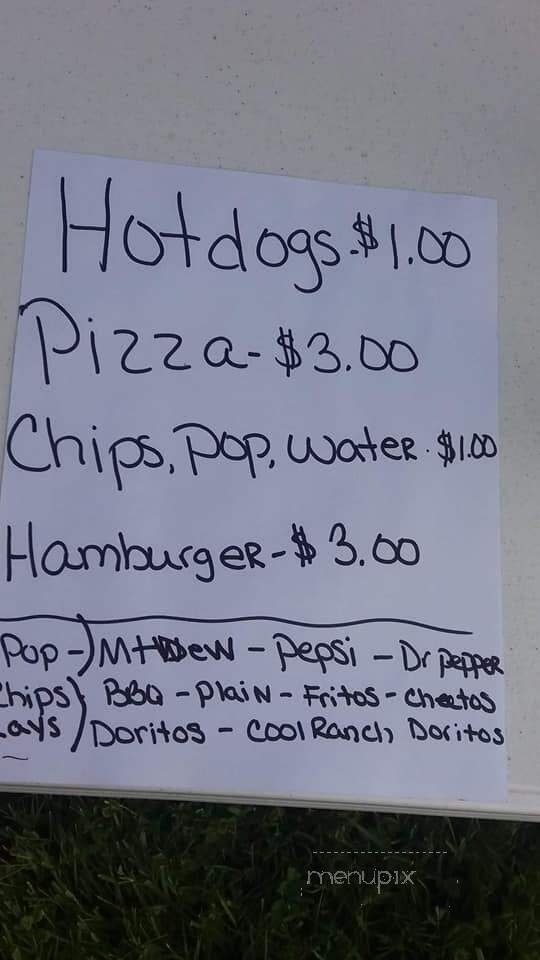 Hotdogs-$1.00
Pizza-$3.00
Chips, Pop, Water-$1.00
Hamburger-$3.00
Pop-) Mt Dew - Pepsi - Dr pepper
Chips } BBQ - Plain - Fritos - Cheetos
Lays Doritos - Cool Ranch Doritos
menupix